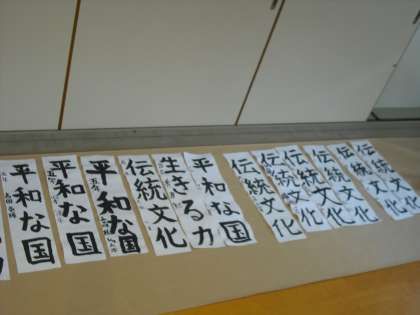 平和な国
平和な国
平和な国
伝統文化
生きる力
平和な国
伝統文化
伝統文化
伝統文化
伝統文化
伝統文化
伝統文化